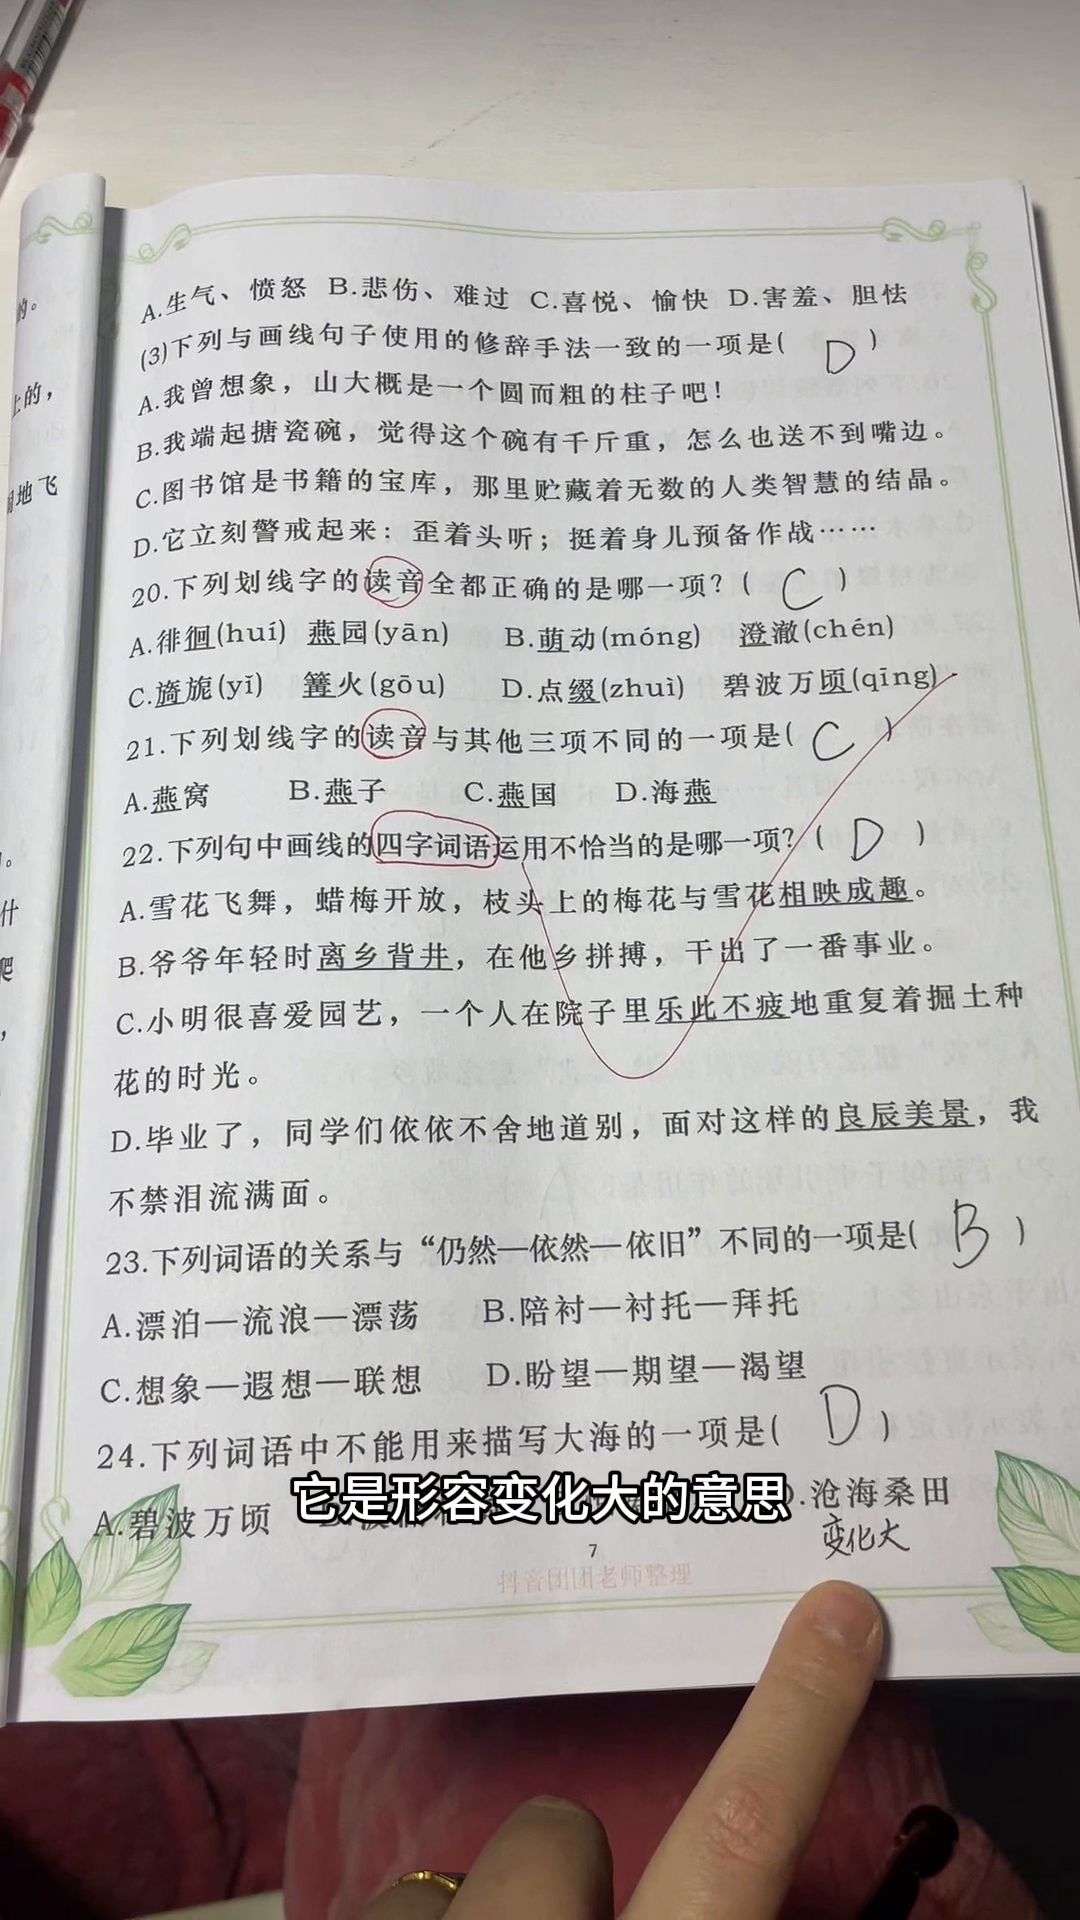 的。
上的，
闹地飞
什
爬
A.生气、愤怒 B.悲伤、难过 C.喜悦、愉快 D.害羞、胆怯
(3)下列与画线句子使用的修辞手法一致的一项是( D )
A.我曾想象，山大概是一个圆而粗的柱子吧！
B.我端起搪瓷碗，觉得这个碗有千斤重，怎么也送不到嘴边。
C.图书馆是书籍的宝库，那里贮藏着无数的人类智慧的结晶。
D.它立刻警戒起来：歪着头听；挺着身儿预备作战……
20.下列划线字的读音全都正确的是哪一项？( C )
A.徘徊(huí) 燕园(yān) B.萌动(móng) 澄澈(chén)
C.旖旎(yǐ) 篝火(gōu) D.点缀(zhuì) 碧波万顷(qīng)
21.下列划线字的读音与其他三项不同的一项是( C )
A.燕窝 B.燕子 C.燕国 D.海燕
22.下列句中画线的四字词语运用不恰当的是哪一项？( D )
A.雪花飞舞，蜡梅开放，枝头上的梅花与雪花相映成趣。
B.爷爷年轻时离乡背井，在他乡拼搏，干出了一番事业。
C.小明很喜爱园艺，一个人在院子里乐此不疲地重复着掘土种
花的时光。
D.毕业了，同学们依依不舍地道别，面对这样的良辰美景，我
不禁泪流满面。
23.下列词语的关系与“仍然—依然—依旧”不同的一项是( B )
A.漂泊—流浪—漂荡 B.陪衬—衬托—拜托
C.想象—遐想—联想 D.盼望—期望—渴望
24.下列词语中不能用来描写大海的一项是( D )
A.碧波万顷 D.沧海桑田
它是形容变化大的意思
变化大
7
抖音团团老师整理